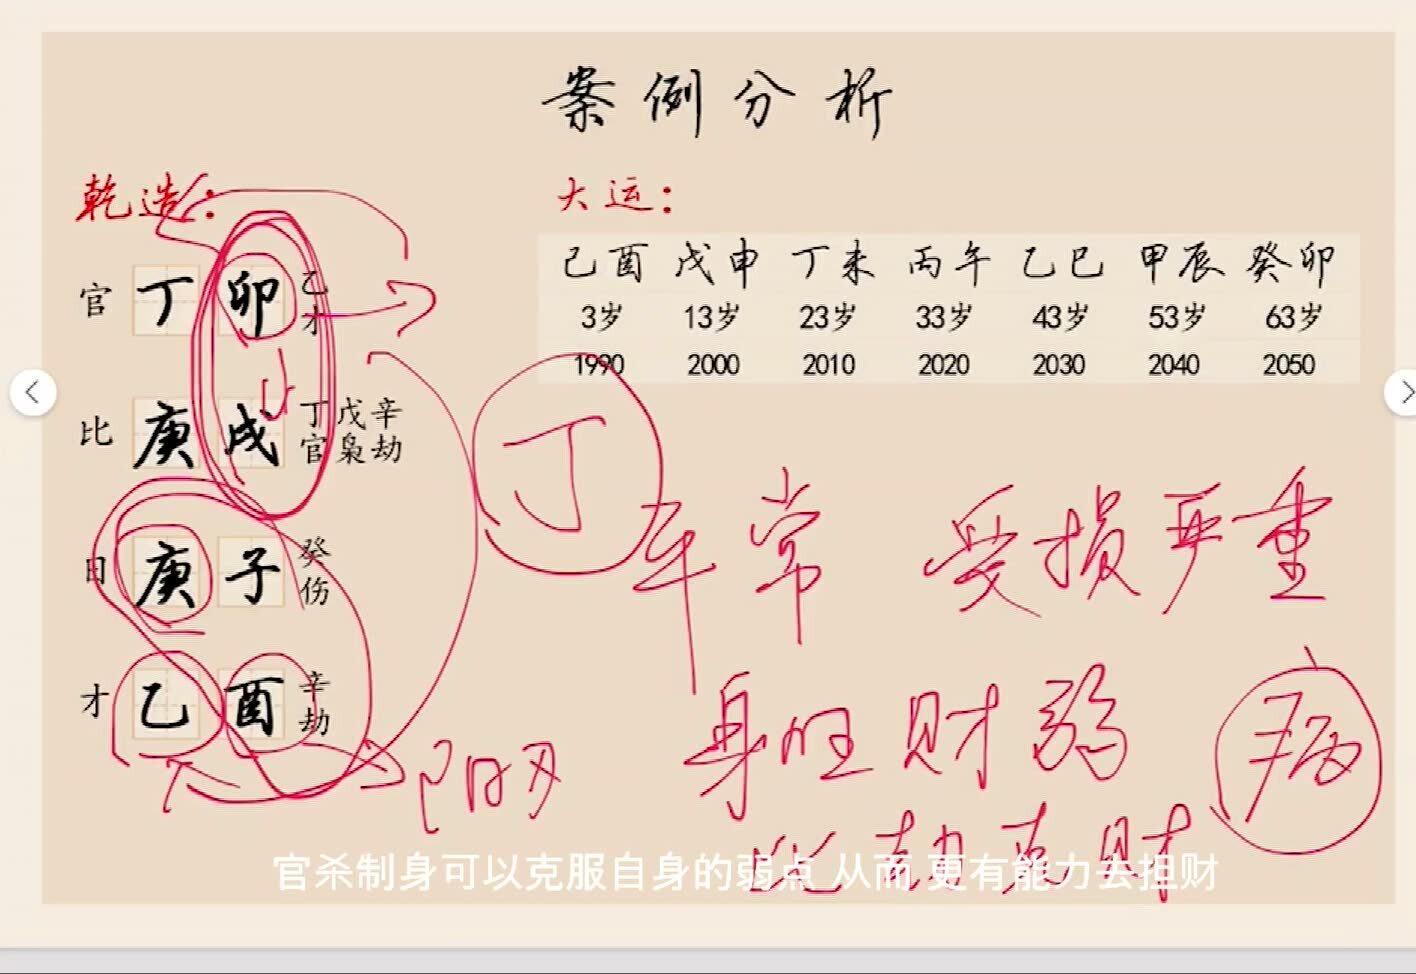 案例分析
乾造：
官 丁 卯 乙
才
比 庚 戌 丁戊辛
官枭劫
日 庚 子 癸
伤
才 乙 酉 辛
劫
大运：
己酉 戊申 丁未 丙午 乙巳 甲辰 癸卯
3岁 13岁 23岁 33岁 43岁 53岁 63岁
1990 2000 2010 2020 2030 2040 2050
丁
年 常 受损严重
身旺财弱 病
阳刃
比劫克财
官杀制身可以克服自身的弱点 从而 更有能力去担财